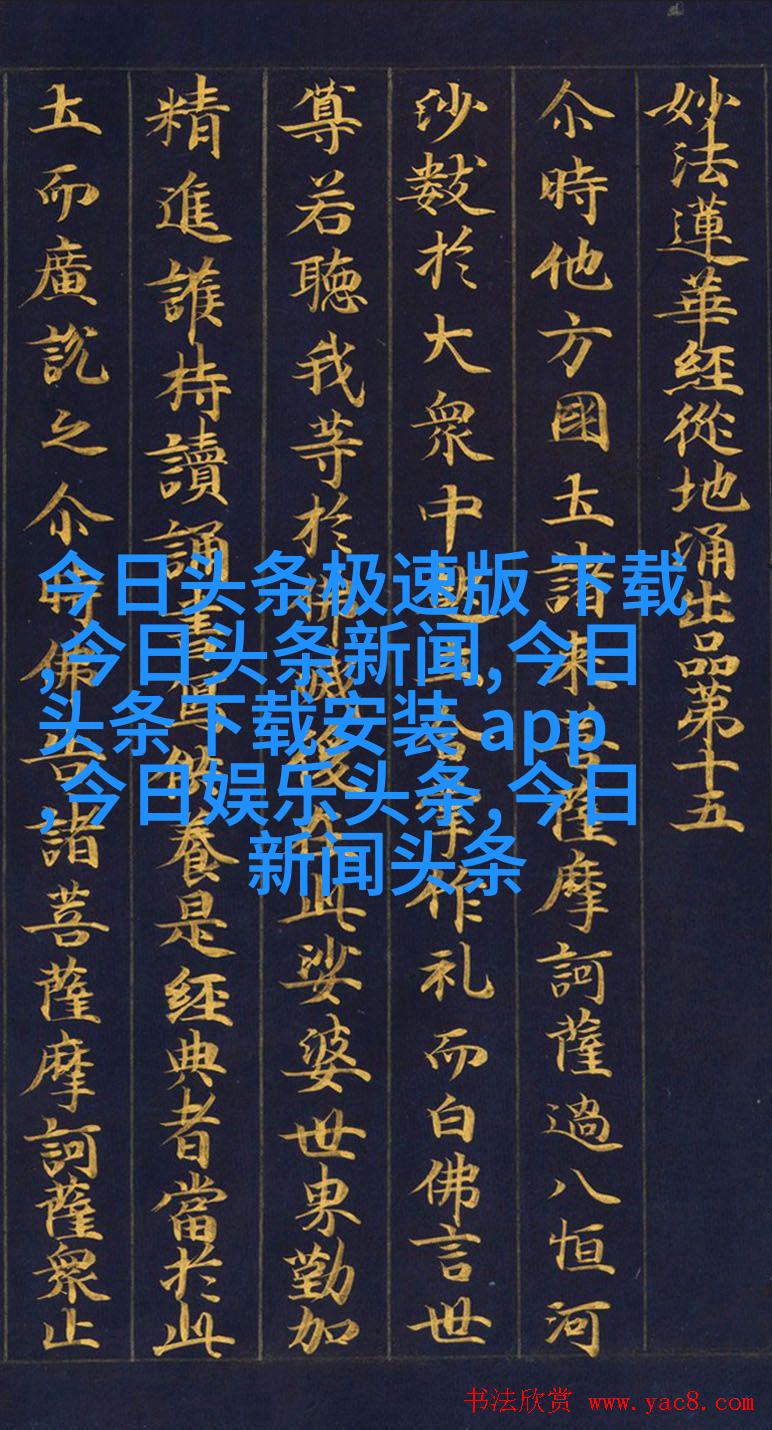 妙法蓮華經從地涌出品第十五
尒時他方國土諸來菩薩摩訶薩過八恒河
沙數於大衆中起立合掌作礼而白佛言世
尊若聽我等於佛滅後在此娑婆世界勤加
精進護持讀誦書寫供養是經典者當於此
土而廣說之尒時佛告諸菩薩摩訶薩衆止
今日头条极速版 下载
,今日头条新闻,今日
头条下载安装 app
,今日娱乐头条,今日
新闻头条
书法欣赏 www.yac8.com